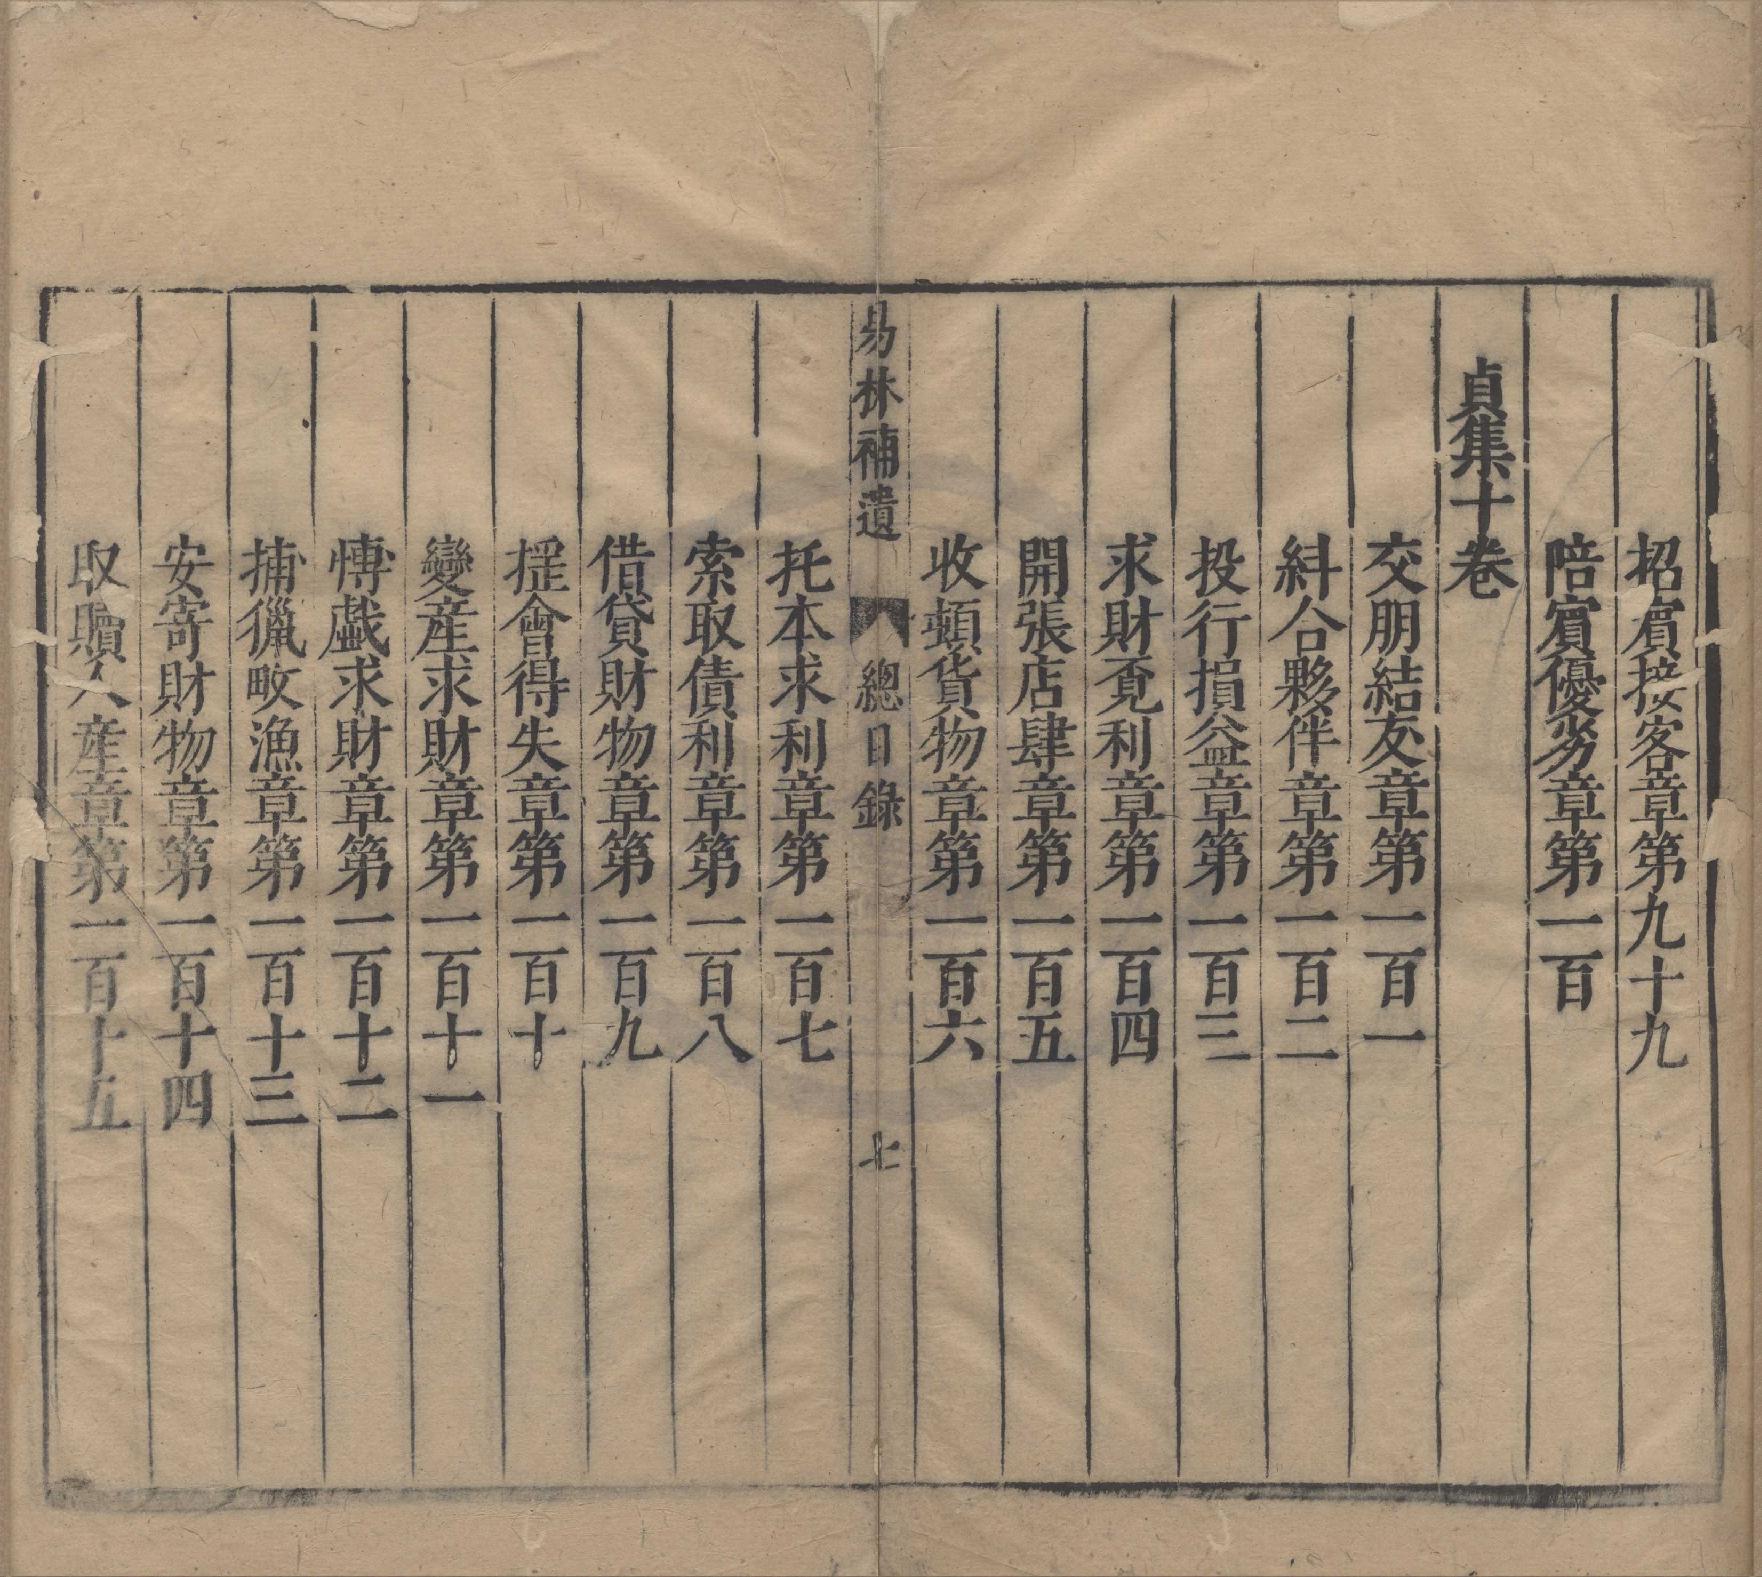 招賔接客章第九十九
陪賔優劣章第一百
貞集十卷
交朋結友章第一百一
糾合夥伴章第一百二
投行損益章第一百三
求財覓利章第一百四
開張店肆章第一百五
收頓貨物章第一百六
易林補遺 總目錄 七
托本求利章第一百七
索取債利章第一百八
借貸財物章第一百九
摇會得失章第一百十
變産求財章第一百十一
愽戱求財章第一百十二
捕獵畋漁章第一百十三
安寄財物章第一百十四
取贖人産章第一百十五